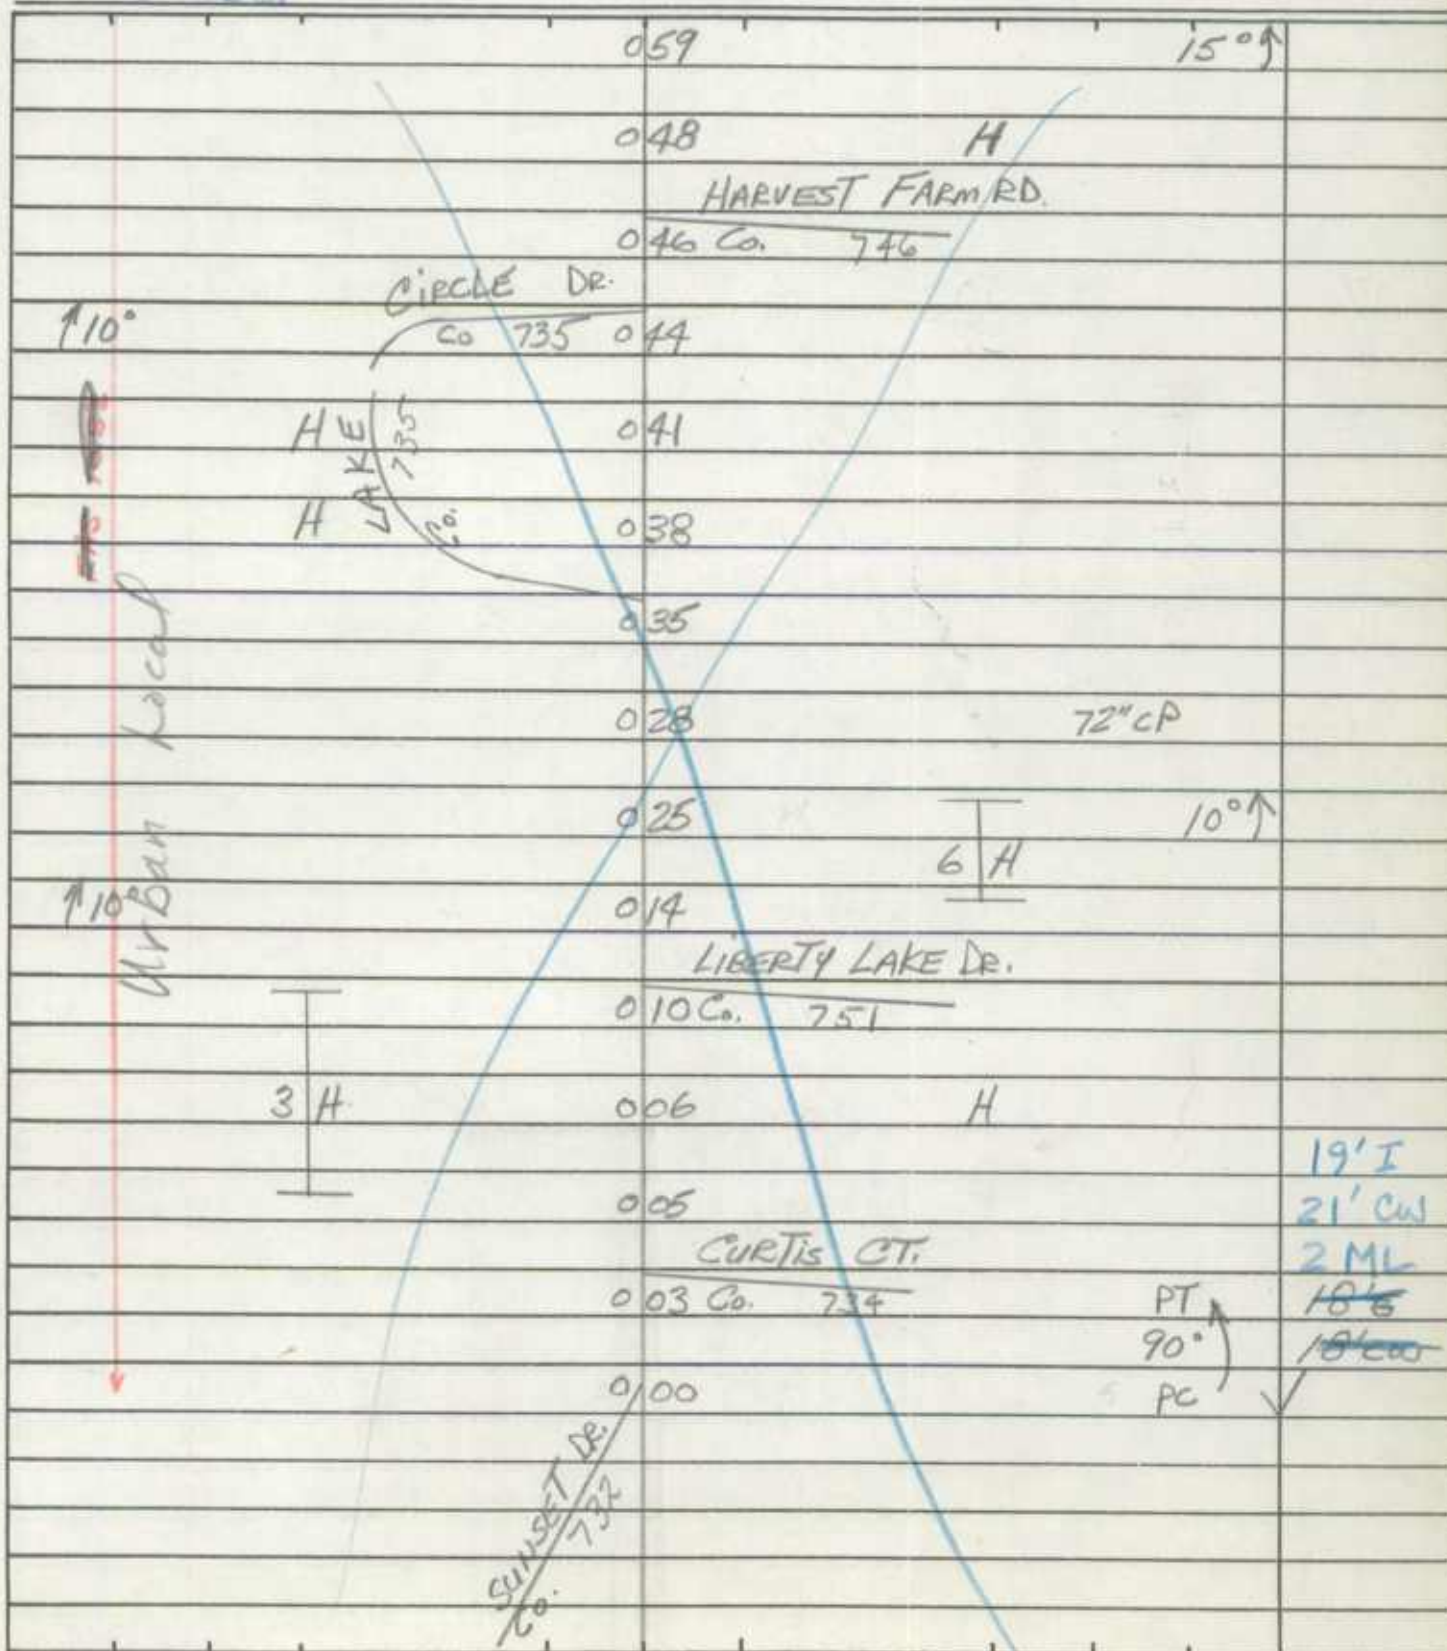 0 59 15°
0 48 H
HARVEST FARM RD.
0 46 Co. 746
CIRCLE DR.
10° Co 735 0 44
H LAKE 735 0 41
H Co. 0 38
0 35
Urban Local
0 28 72" CP
0 25 10°
6 H
10° 0 14
LIBERTY LAKE DR.
0 10 Co. 751
3 H 0 06 H
19' I
0 05 21' CW
CURTIS CT. 2 ML
0 03 Co. 734 PT 18'G
90° 18'CW
0 00 PC
SUNSET DR.
732
Co.